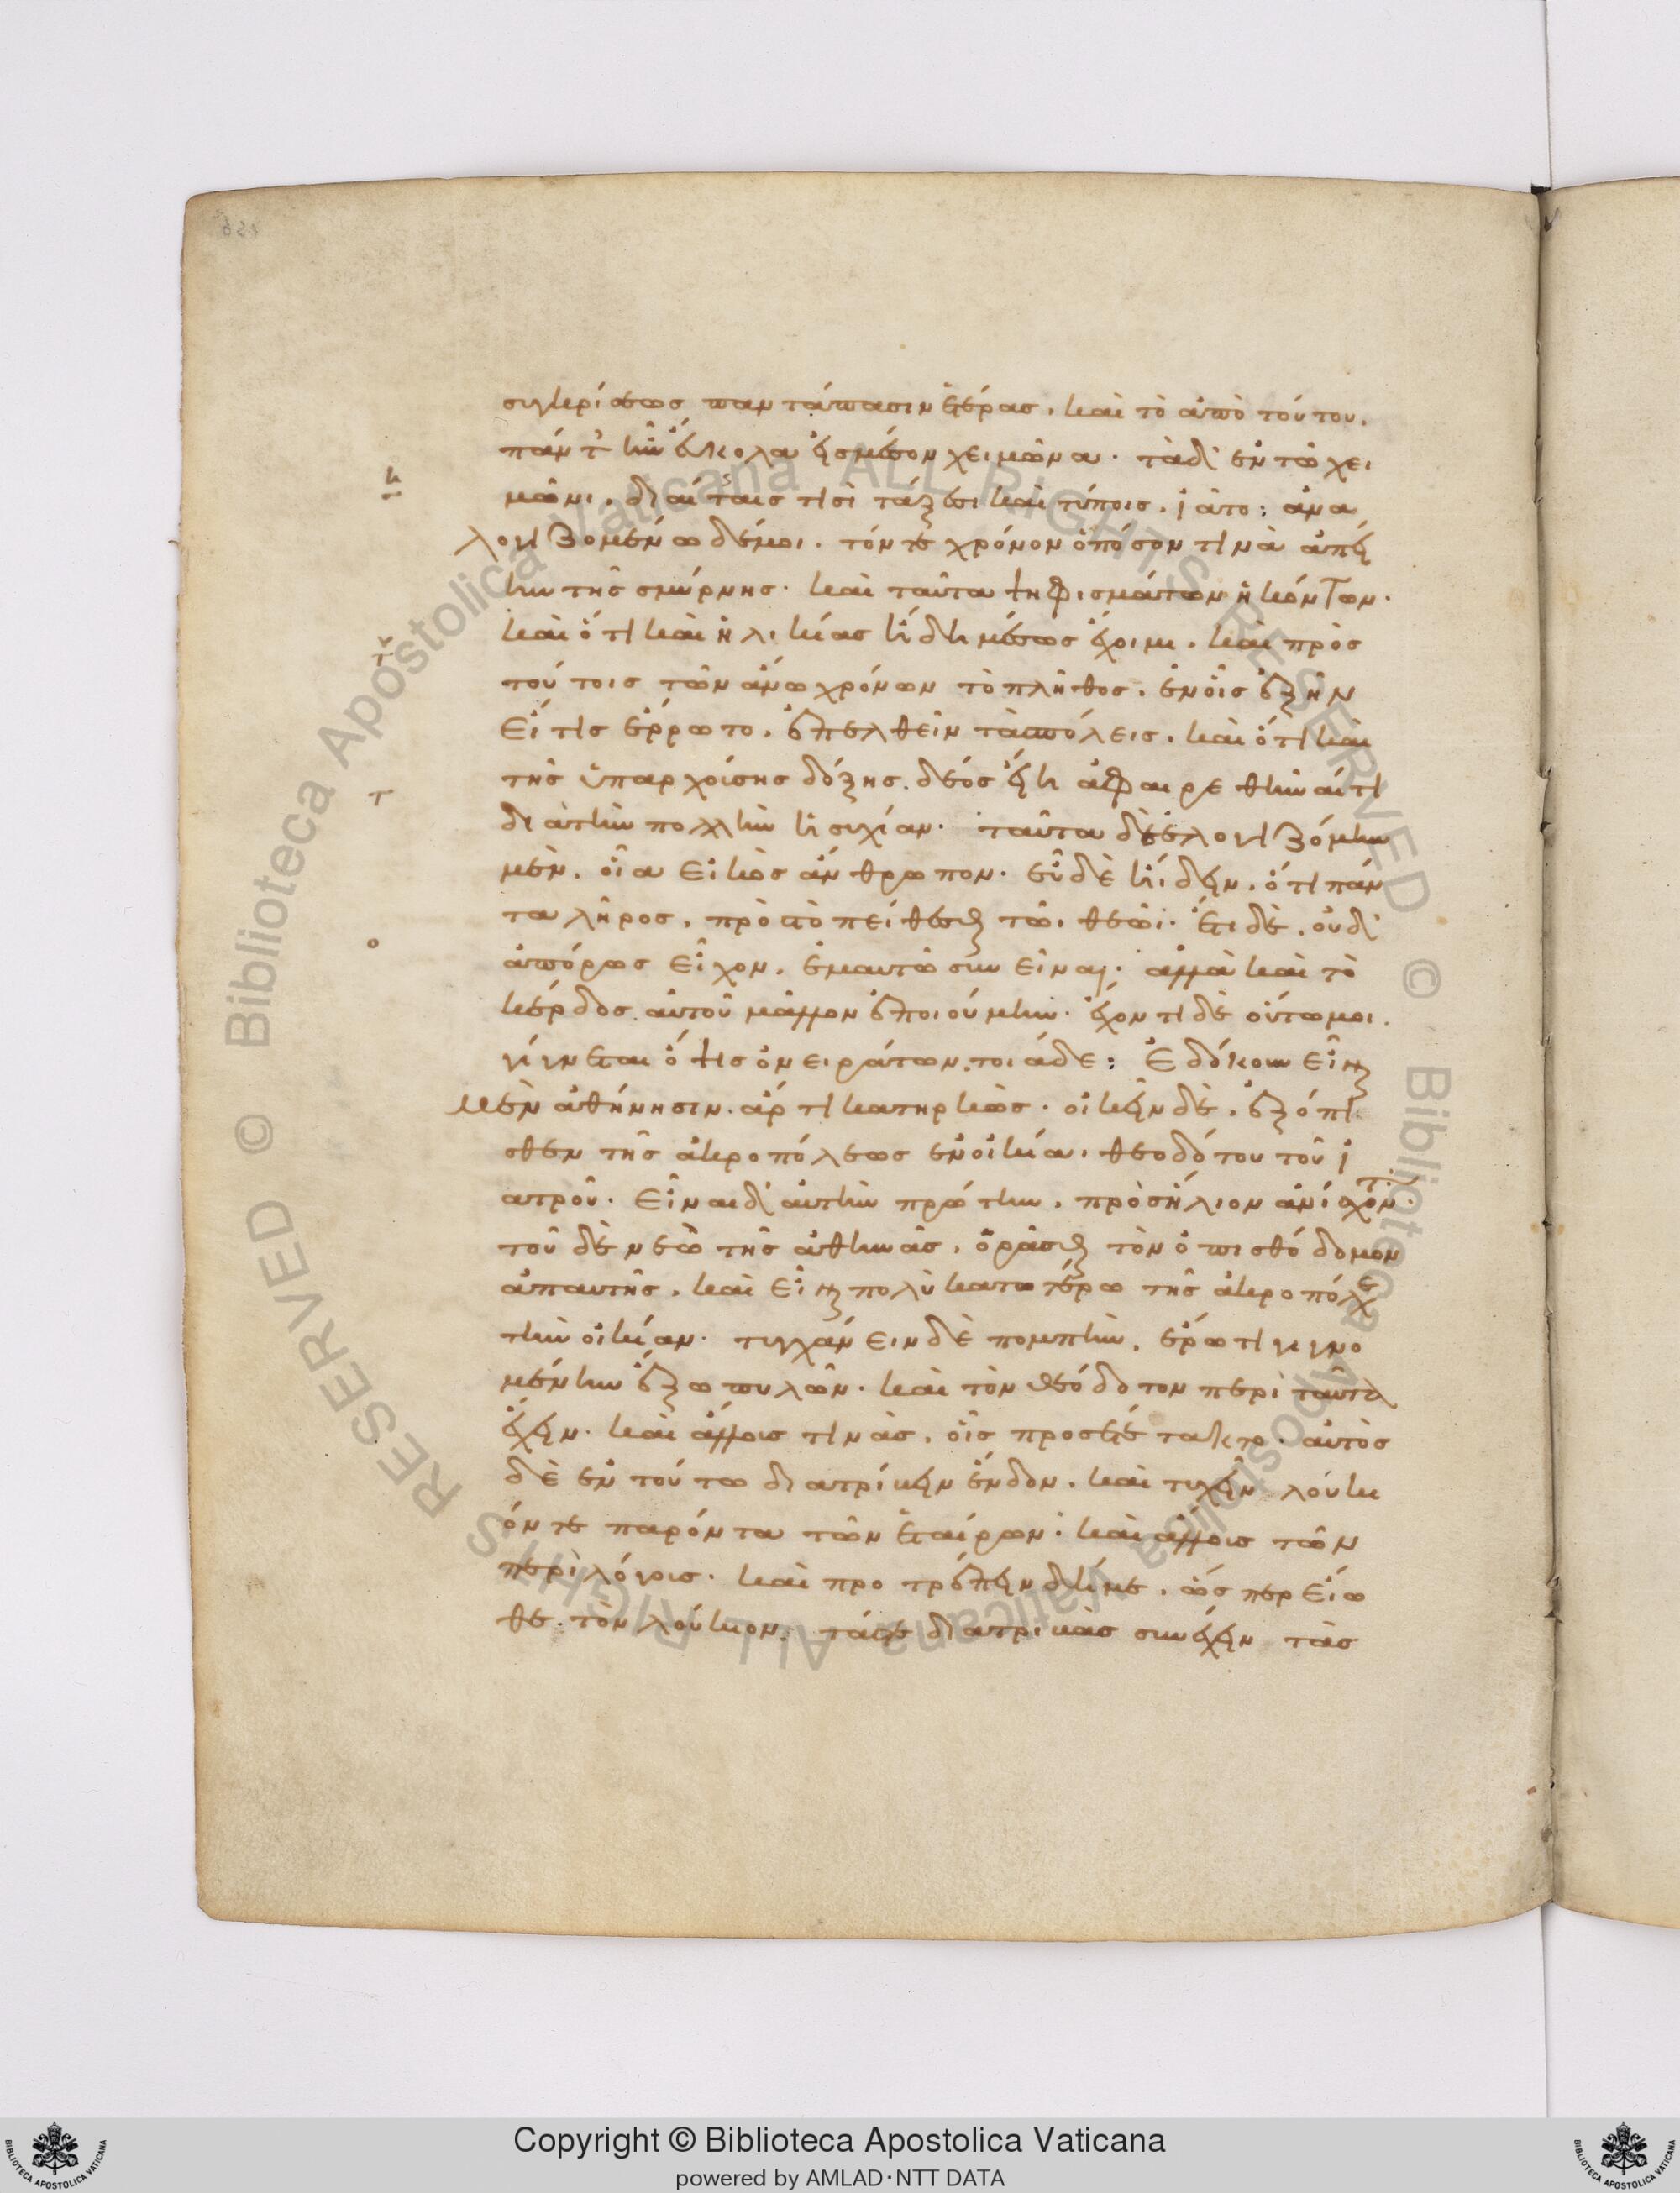 συγκρίσεως παντάπασιν ἑτέρας. καὶ τὸ ἀπὸ τούτου.
πάντ᾽ ἦν εὔκολα εἰς μέσον χειμῶνα. τὰ δ᾽ ἐν τῶ χει
μῶνι. διαίταις τισὶ τάξεσι καὶ τύποις. ἰᾶτο: ἀνα
λογιζομένω δέ μοι. τόν τε χρόνον ὁπόσον τινὰ ἀπεί
ην τῆς σμύρνης. καὶ ταῦτα ψηφισμάτων ἡκόντων.
καὶ ὅτι καὶ ἡλικίας ἤδη μέσως ἔχοιμι. καὶ πρὸς
τούτοις τῶν ἄνω χρόνων τὸ πλῆθος. ἐν οἷς ἐξῆν
εἴ τις ἔρρωτο. ἐπελθεῖν τὰς πόλεις. καὶ ὅτι καὶ
τῆς ὑπαρχούσης δόξης. δέος εἴη ἀφαιρεθῆναί τι
διὰ τὴν πολλὴν ἡσυχίαν. ταῦτα δὲ ἐλογιζόμην
μὲν. οἷα εἰκὸς ἄνθρωπον. εὖ δὲ ἤδειν. ὅτι πάν
τα λῆρος. πρὸς τὸ πείθεσθαι τῶι θεῶι. ἔτι δὲ. οὐδ᾽
ἀπόρως εἶχον. ἐμαυτῶ συνεῖναι. ἀλλὰ καὶ τὸ
κέρδος αὐτοῦ μᾶλλον ἐποιούμην. ἔχοντι δὲ οὕτω μοι.
γίνεται ὄψις ὀνειράτων. τοιάδε: Ἐδόκουν εἶναι
μὲν ἀθήνησιν. ἄρτι κατηρκὼς. οἰκεῖν δὲ. ἐξόπι
σθεν τῆς ἀκροπόλεως ἐν οἰκία. θεοδότου τοῦ ἰ
ατροῦ. εἶναι δ᾽ αὐτὴν πρώτην. πρὸς ἥλιον ἀνίσχοντ.
τοῦ δὲ νεὼ τῆς ἀθηνᾶς. ὁρᾶσθαι τὸν ὀπισθόδομον
ἀπ᾽ αυτῆς. καὶ εἶναι πολὺ κατωτέρω τῆς ἀκροπόλε
τὴν οἰκίαν. τυγχάνειν δὲ πομπὴν. ἔρωτι γιγνο
μένην ἔξω πυλῶν. καὶ τὸν θεόδοτον περὶ ταῦτα
ἔχειν. καὶ ἄλλους τινὰς. οἷς προσετέτακτο. αὐτὸς
δὲ ἐν τούτω διατρίβειν ἔνδον. καὶ τυχεῖν λούκι
όν τε παρόντα τῶν ἑταίρων. καὶ ἄλλους τῶν
περὶ λόγους. καὶ προτρέπειν δή με. ὥσπερ εἰώ
θε. τὸν λούκιον. τάς τε διατριβὰς συνέχειν τὰς